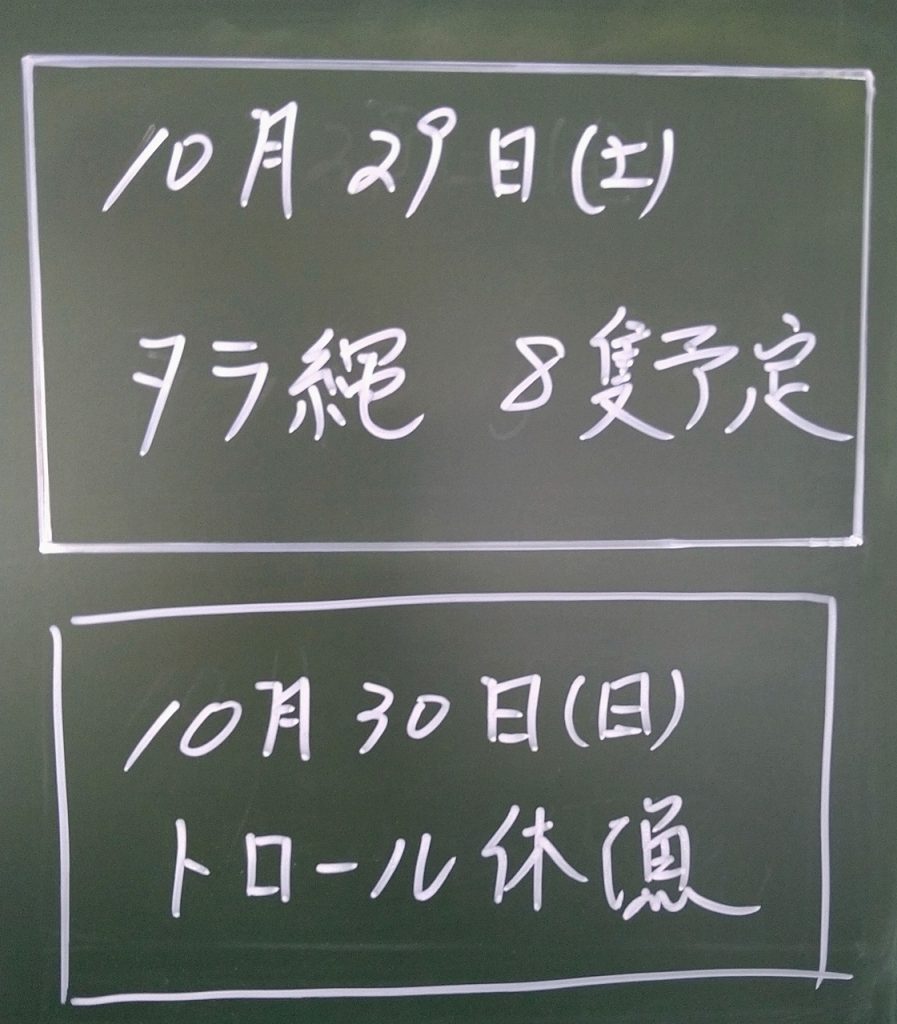 10月29日(土)
タラ縄 8隻予定
10月30日(日)
トロール休漁